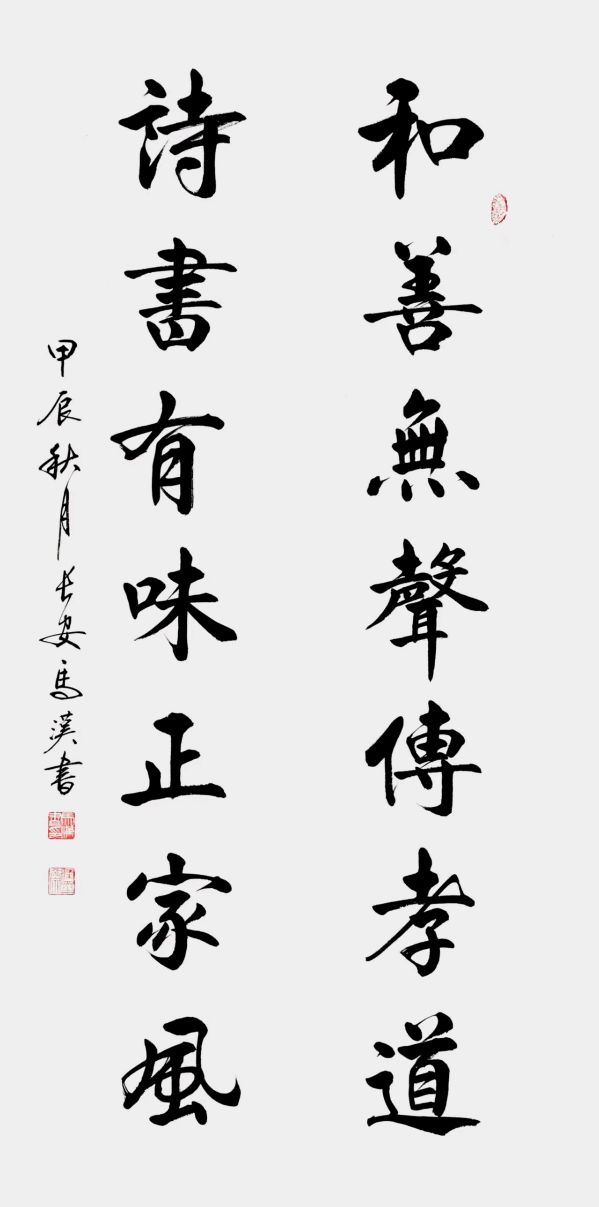 和善無聲傳孝道
詩書有味正家風
甲辰秋月長安馬漢書